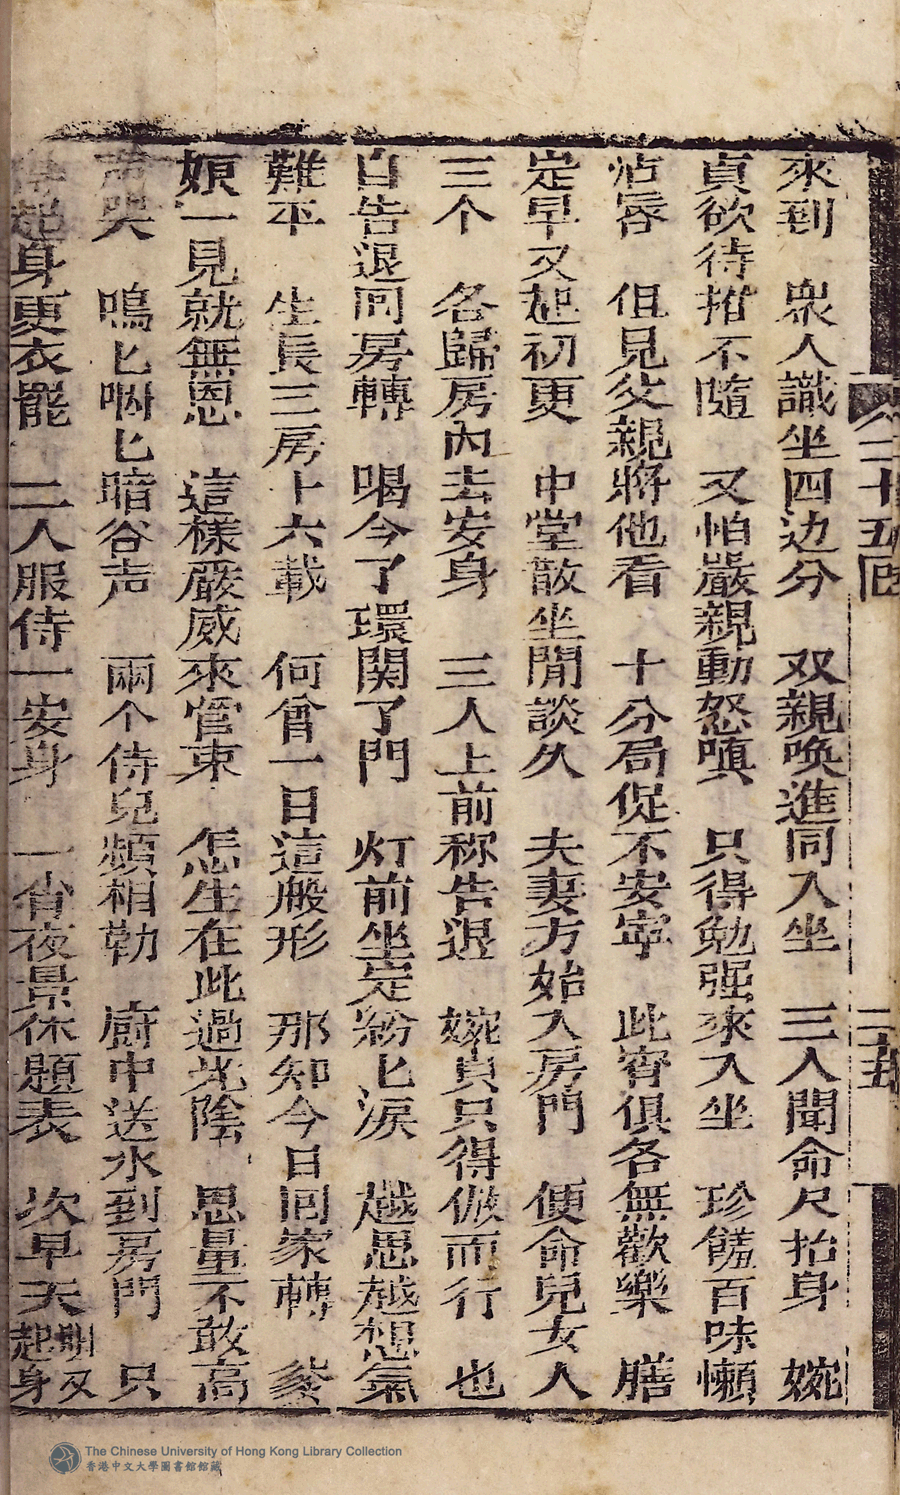 來到　衆人識坐四边分　双親喚進同入坐　三人聞命尺抬身　婉
貞欲待推不隨　又怕嚴親動怒嗔　只得勉强來入坐　珍饈百味懶
沾唇　但見父親將他看　十分局促不安寧　此宵俱各無歡樂　膳
定早又起初更　中堂散坐閒談久　夫妻方始入房門　便命兒女人
三个　各歸房內去安身　三人上前称告退　婉貞只得倣而行　也
自告退囘房轉　喝令了環関了門　灯前坐定紛匕淚　越思越想氣
難平　生長三房十六載　何曾一日這般形　那知今日囘家轉　爹
娘一見就無恩　這樣嚴威來管束　怎生在此過光陰　思量不敢高
声哭　嗚匕咽匕暗谷声　兩个侍兒頻相勒　廚中送水到房門　只
得起身更衣罷　二人服侍一安身　一宵夜景休題表　次早天明又起身
卷二十五囘
二十五
The Chinese University of Hong Kong Library Collection
香港中文大學圖書館館藏